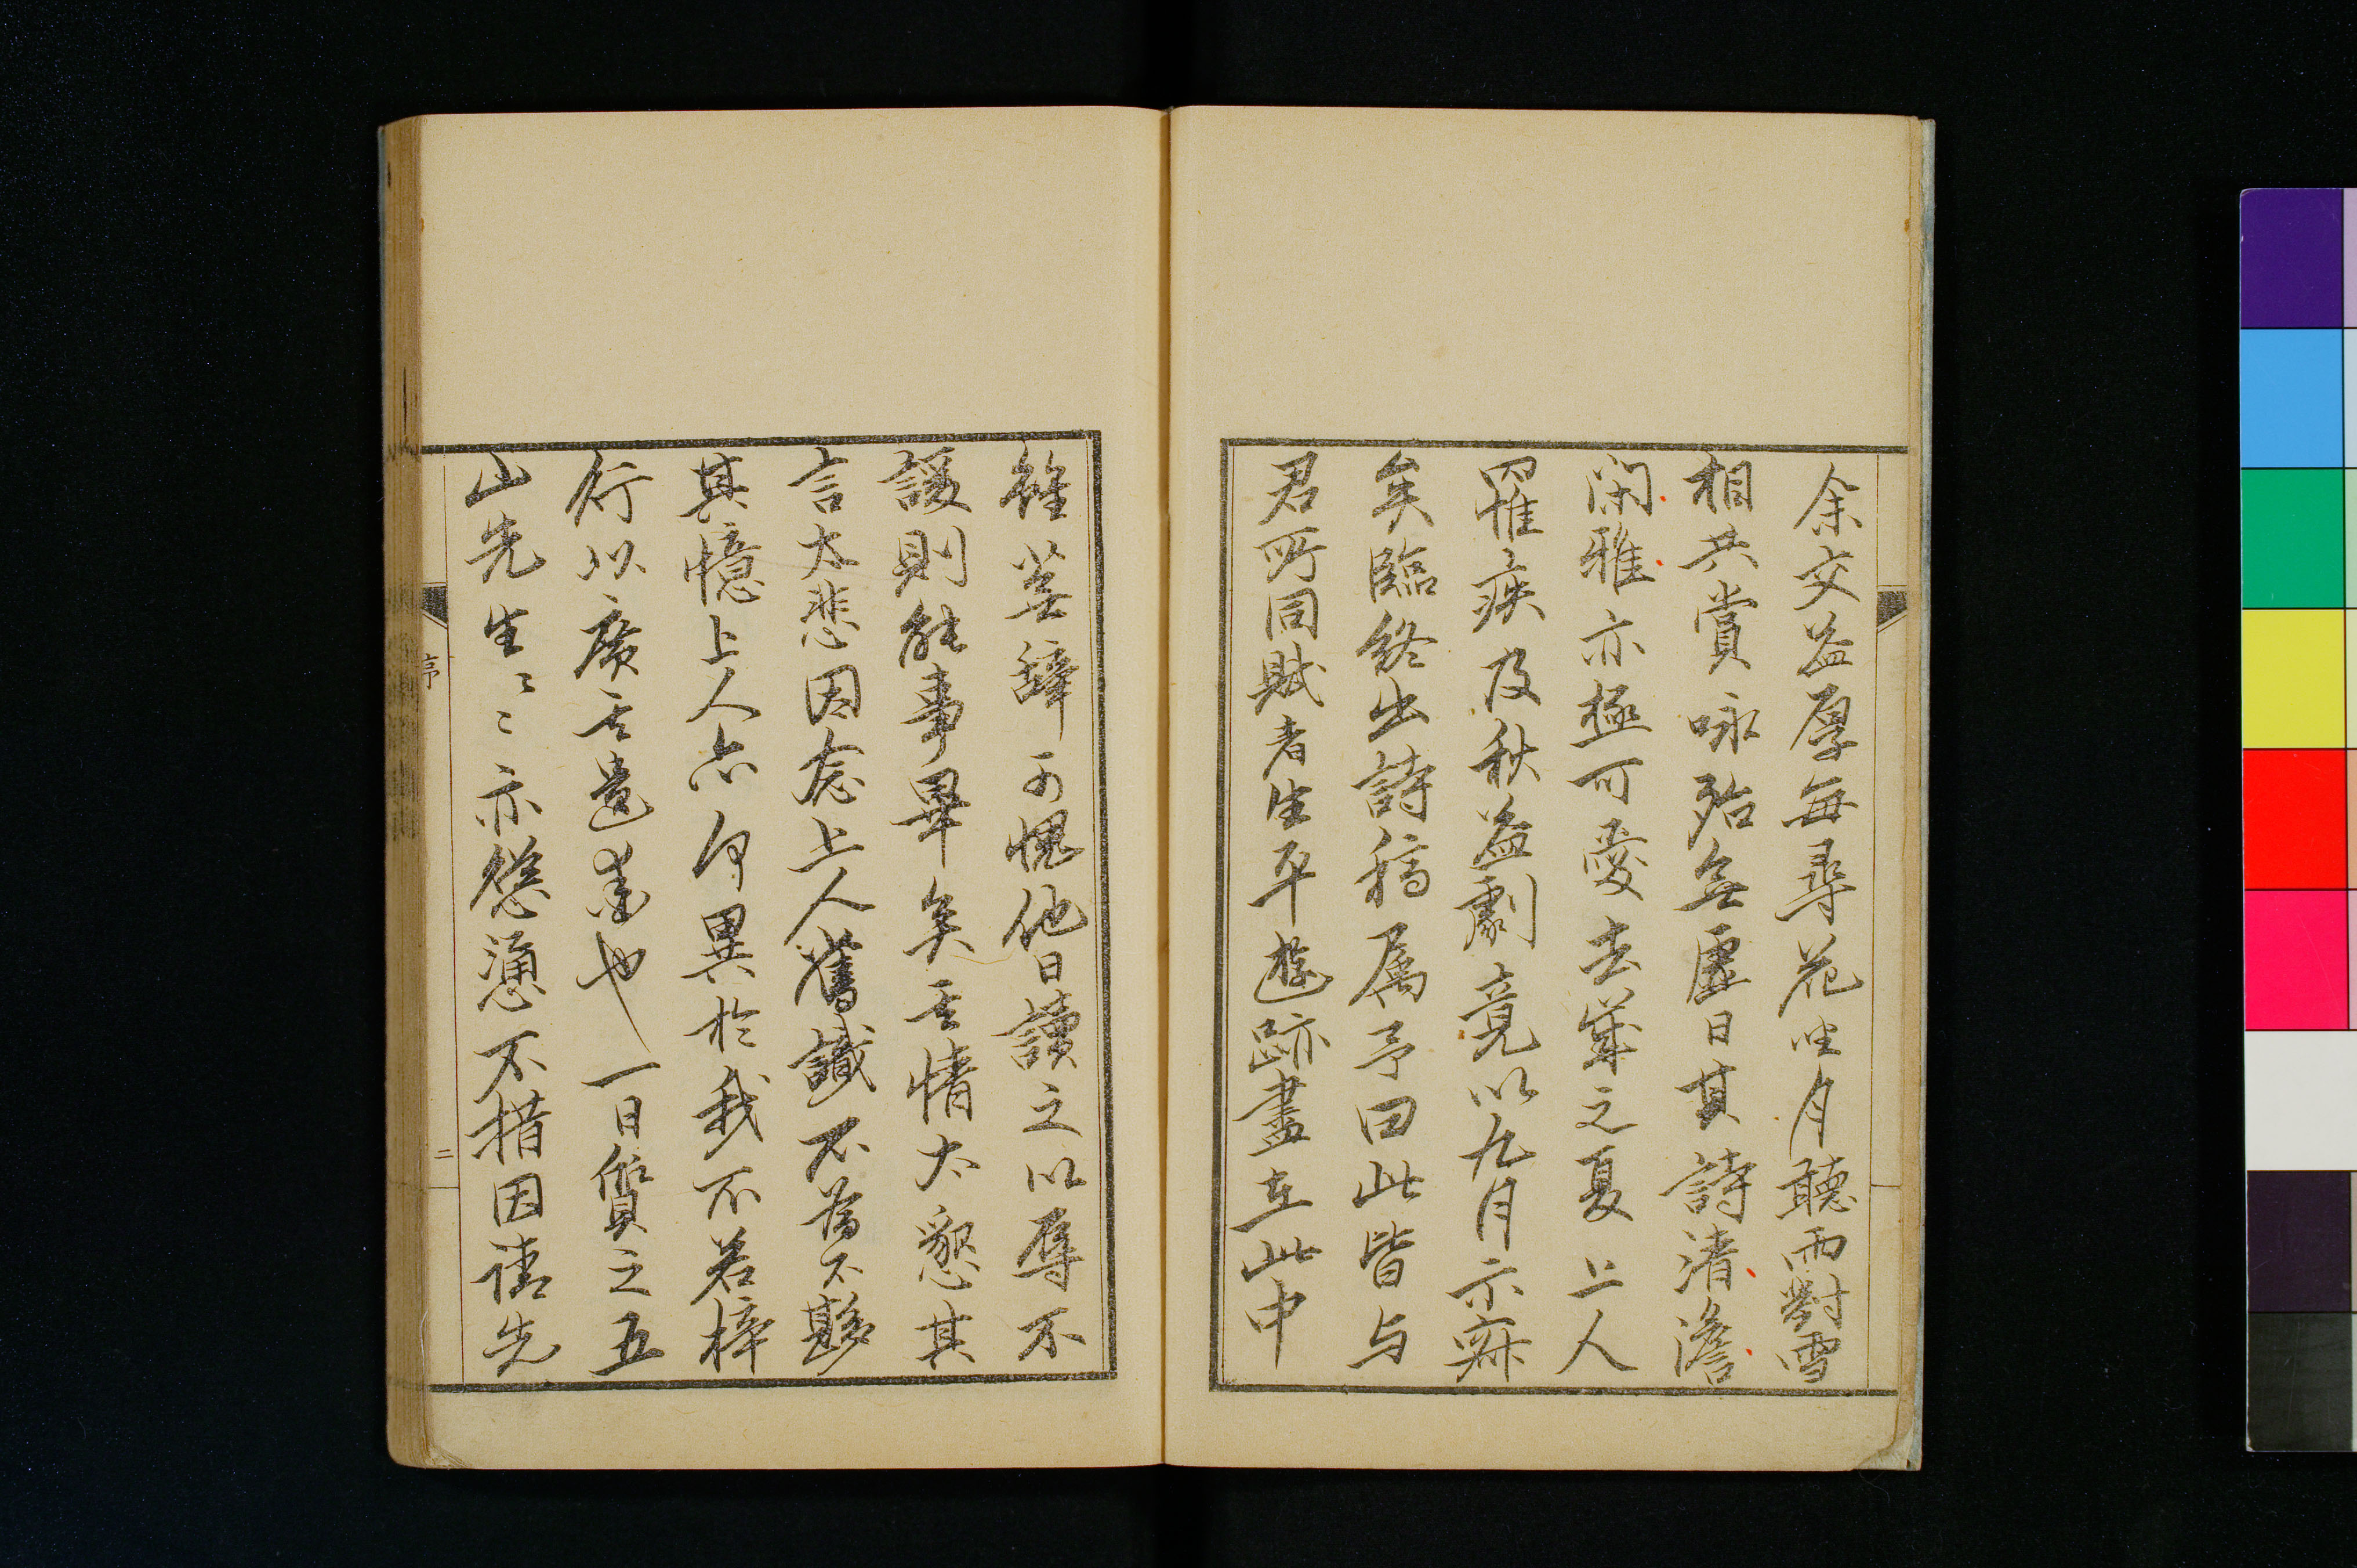 余交益厚毎尋花坐月聽雨對雪
相共賞咏殆無虛日其詩清澹
閑雅亦極可愛去歲之夏上人
罹疾及秋益劇竟以九月示寂
矣臨終出詩稿属予曰此皆与
君所同賦者生平遊跡盡在此中
雖蕪辭可愧他日讀之以辱不
諼則能事畢矣其情太懇其
言太悲因念上人舊識不為不夥
其憶上人亦何異於我不若梓
行以廣其遺美也一日質之五
山先生〻〻亦慫慂不措因請先
序
二